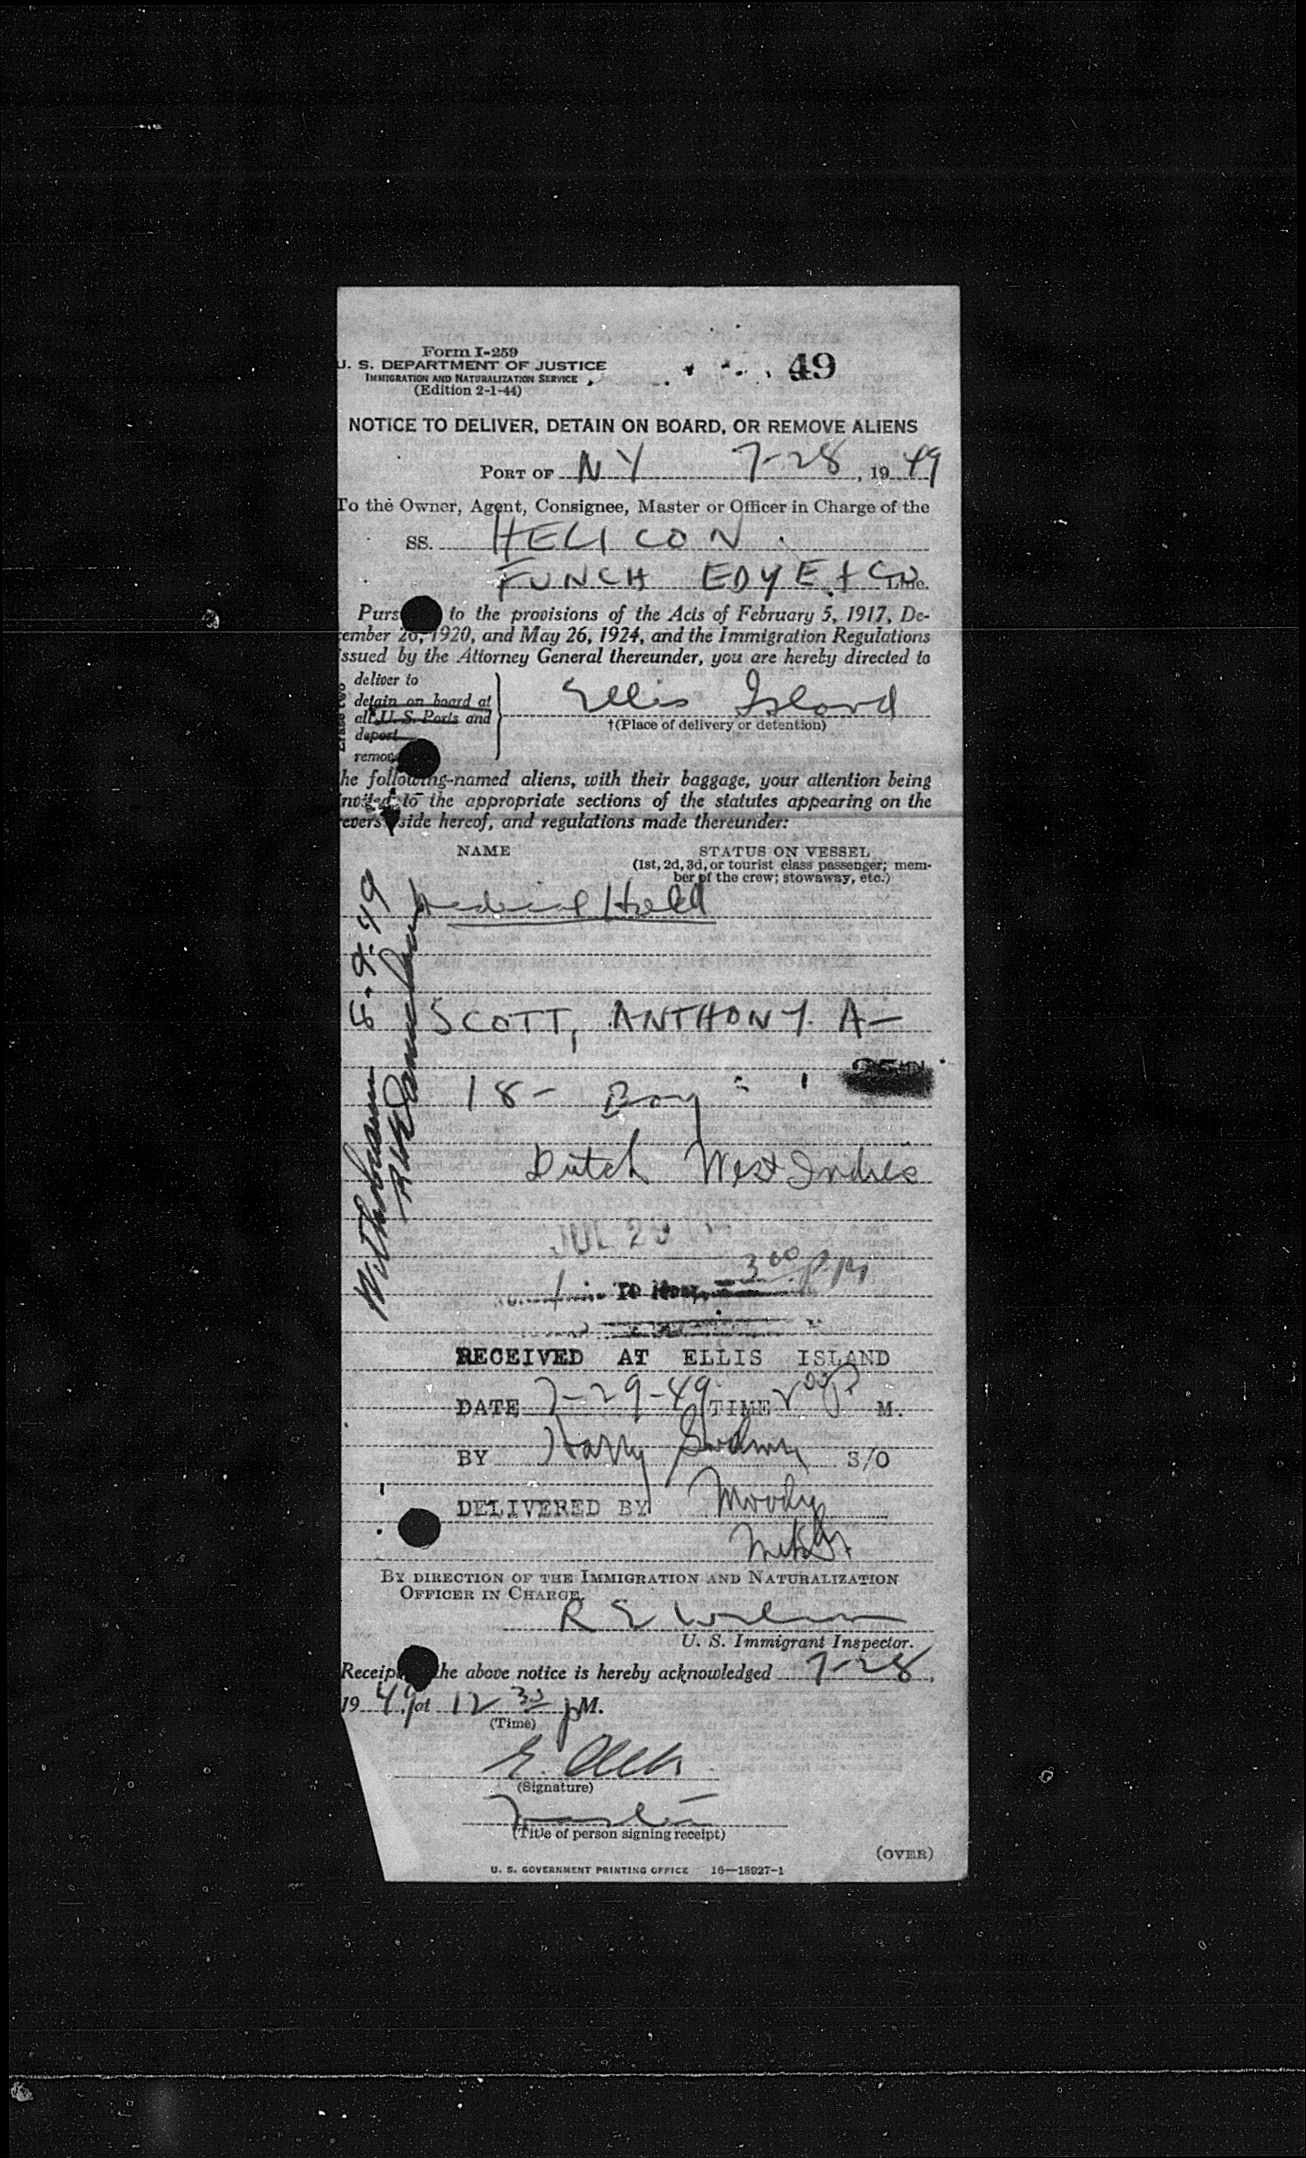 Form I-259
U. S. DEPARTMENT OF JUSTICE
IMMIGRATION AND NATURALIZATION SERVICE
(Edition 2-1-44)
49
NOTICE TO DELIVER, DETAIN ON BOARD, OR REMOVE ALIENS
PORT OF N Y 7-28, 19 49
To the Owner, Agent, Consignee, Master or Officer in Charge of the
SS. HELICON
FUNCH EDYE + Co Line.
Purs to the provisions of the Acts of February 5, 1917, De-
cember 26, 1920, and May 26, 1924, and the Immigration Regulations
issued by the Attorney General thereunder, you are hereby directed to
deliver to
detain on board at
all U. S. Ports and
deport
remov
Erase two
Ellis Island
†(Place of delivery or detention)
the following-named aliens, with their baggage, your attention being
invited to the appropriate sections of the statutes appearing on the
reverse side hereof, and regulations made thereunder:
NAME STATUS ON VESSEL
(1st, 2d, 3d, or tourist class passenger; mem-
ber of the crew; stowaway, etc.)
Medical Hold
8-9-49
SCOTT, ANTHONY A-
18- Boy
Dutch West Indies
JUL 29
3 00 PM
RECEIVED AT ELLIS ISLAND
DATE 7-29-49 TIME M.
BY Harry S/O
DELIVERED BY Moody
BY DIRECTION OF THE IMMIGRATION AND NATURALIZATION
OFFICER IN CHARGE.
R E
U. S. Immigrant Inspector.
Receip the above notice is hereby acknowledged 7-28,
19 49, at 12 30 pM.
(Time)
(Signature)
(Title of person signing receipt)
(OVER)
U. S. GOVERNMENT PRINTING OFFICE 16—18927-1